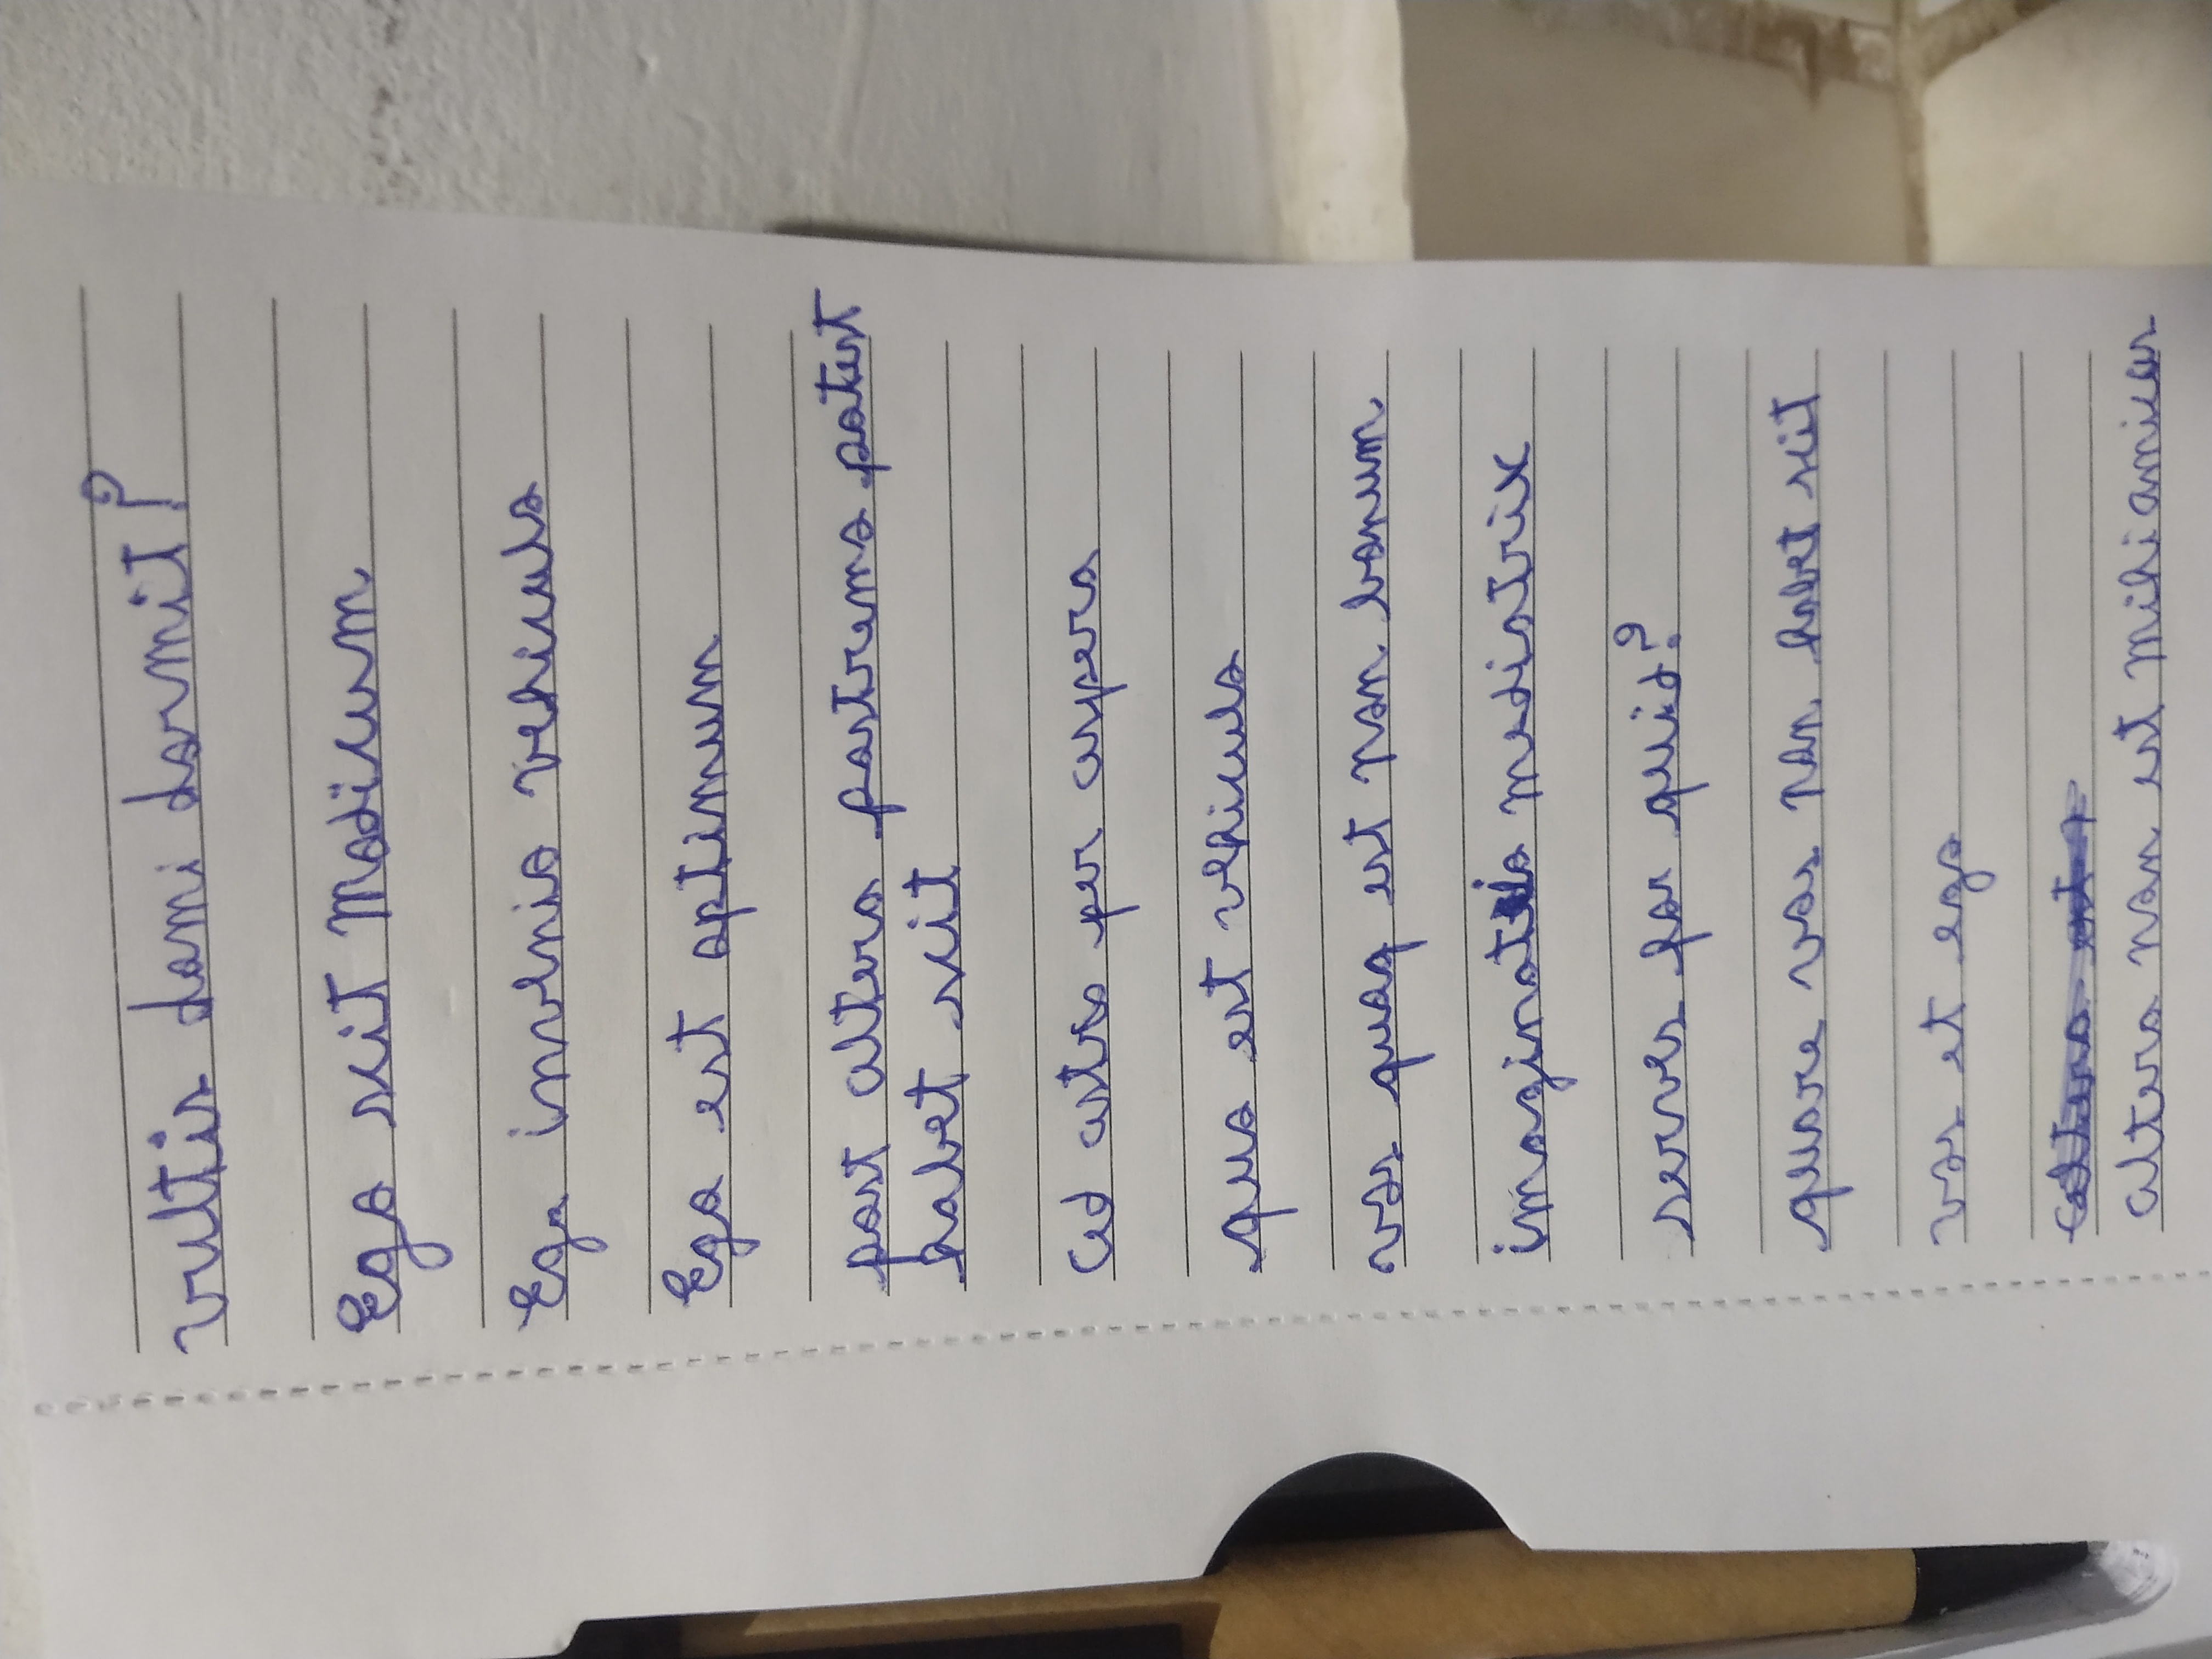 vultis domi dormit?
Ego scit Modicum
Ego invenio vehiculo
Ego est optimum
post altero postremo potest
habet scit
Ad astra per aspera
quo est vehiculo
vos quoq est non bonum
imaginatio mediatrix
serves por quid?
quare vos non habet scit
vos et ego
altero non est mihi amicos